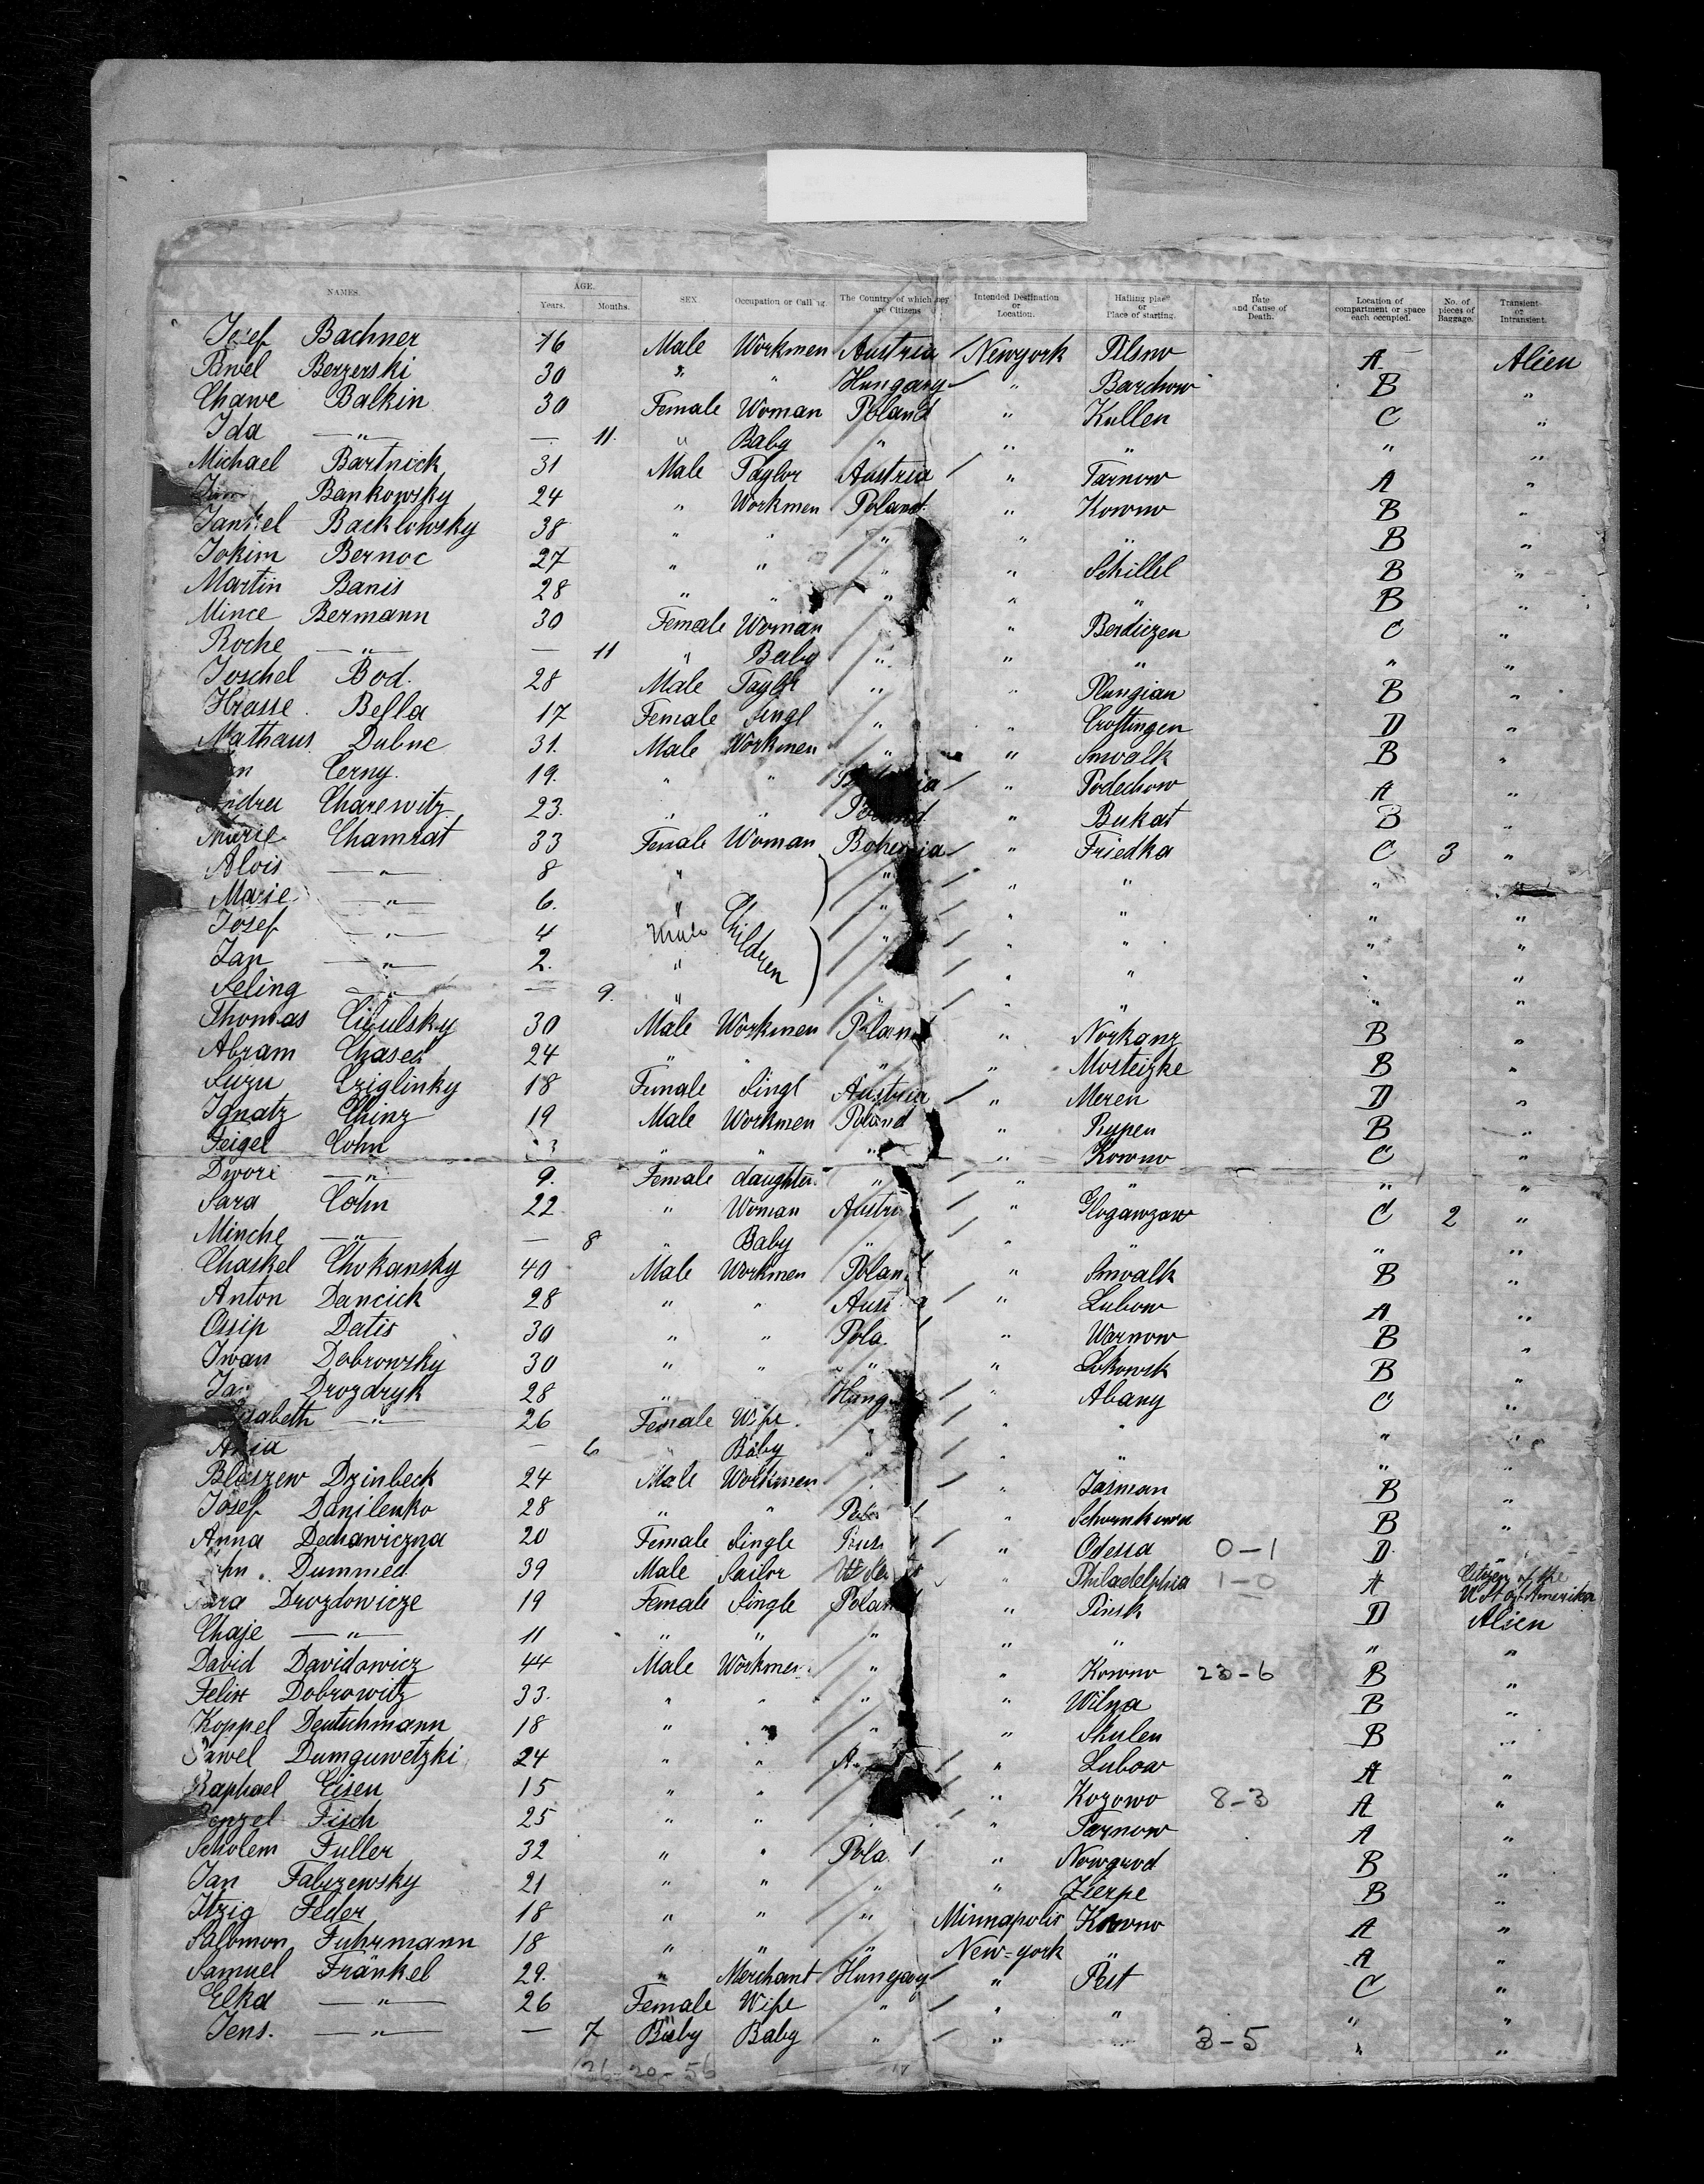 NAMES. AGE. Years. Months. SEX Occupation or Calling The Country of which they are Citizens Intended Destination or Location. Hailing place or Place of starting. Date and Cause of Death. Location of compartment or space each occupied. No. of pieces of Baggage. Transient or Intransient.
Josef Bachner 16 Male Workmen Austria Newyork Pilsno A Alien
Pawel Berzerski 30 " " Hungary " Barchow B "
Chawe Balkin 30 Female Woman Poland " Kullen C "
Ida — " — — 11. " Baby " " " " "
Michael Bartnick 31 Male Taylor Austria " Tarnow A "
Bankowsky 24 " Workmen Poland " Kowno B "
Jankel Backlowsky 38 " " " " " B "
Jokim Bernoc 27 " " " " Schillel B "
Martin Banis 28 " " " " " B "
Mince Bermann 30 Female Woman " " Berdiczen C "
Roche — " — — 11 " Baby " " " " "
Joschel Bod. 28 Male Taylor " " Plungian B "
Hrasse Bella 17 Female Singl " " Crottingen D "
Mathaus Dubne 31. Male Workmen " " Suwalk B "
Cerny. 19. " " " Podechow A "
Andrea Charewitz 23. " " Poland " Bukat B "
Marie Chamrat 33 Female Woman Bohemia " Friedka C 3 "
Alois — " — 8 " " " " " "
Marie — " — 6. " Children " " " " "
Josef — " — 4 Male " " " " "
Jan — " — 2. " " " " " "
Feling — " — — 9. " " " " " "
Thomas Cigulsky 30 Male Workmen Poland " Norkanz B "
Abram Chases 24 " " " " Mosteizke B "
Suzu Cziglinky 18 Female Singl Austria " Meren D "
Ignatz Chinz 19 Male Workmen Poland " Rypen B "
Feigel Cohn " " " " Kowno C "
Dwore — " — 9. Female daughter " " " " "
Sara Cohn 22 " Woman Austri " Glogawzaw C 2 "
Minche — " — — 8 " Baby " " " " "
Chaskel Chokansky 40 Male Workmen Polan " Suwalk B "
Anton Dancick 28 " " Aust " Lubow A "
Ossip Datis 30 " " Pola " Warnow B "
Iwan Dobrowsky 30 " " " " Lokowsk B "
Drozdryk 28 " " Hung " Abany C "
— " — 26 Female Wife " " " " "
— 6 " Baby " " " " "
Blaszew Dzinbeck 24 Male Workmen " " Jasman B "
Josef Danilenko 28 " " " B "
Anna Dechawiczna 20 Female Single " Odessa 0-1 D "
Dummed 39 Male Sailor " Philadelphia 1-0 A Citizen of the U St of Amerika
Drozdowicze 19 Female Single Poland " Pinsk D Alien
Chaje — " — 11 " " " " " " "
David Davidowicz 44 Male Workmen " " Kowno 23-6 B "
Felix Dobrowitz 33. " " " " Wilna B "
Koppel Deutschmann 18 " " " " Skulen B "
Pawel Dumguwetzki 24 " " A " Lubow A "
Raphael Eisen 15 " " " Kozowo 8-3 A "
Fisch 25 " " " Tarnow A "
Scholem Fuller 32 " " Pola " Nowgrod B "
Jan Fabrzewsky 21 " " " " Zierpe B "
Itzig Feder 18 " " " Minnapolis Kowno A "
Salomon Fuhrmann 18 " " " New=york " A "
Samuel Fränkel 29. " Merchant Hungary " Pest C "
Elka — " — 26 Female Wife " " " " "
Jens. — " — — 7 Baby Baby " " " 3-5 " "
126-20-56